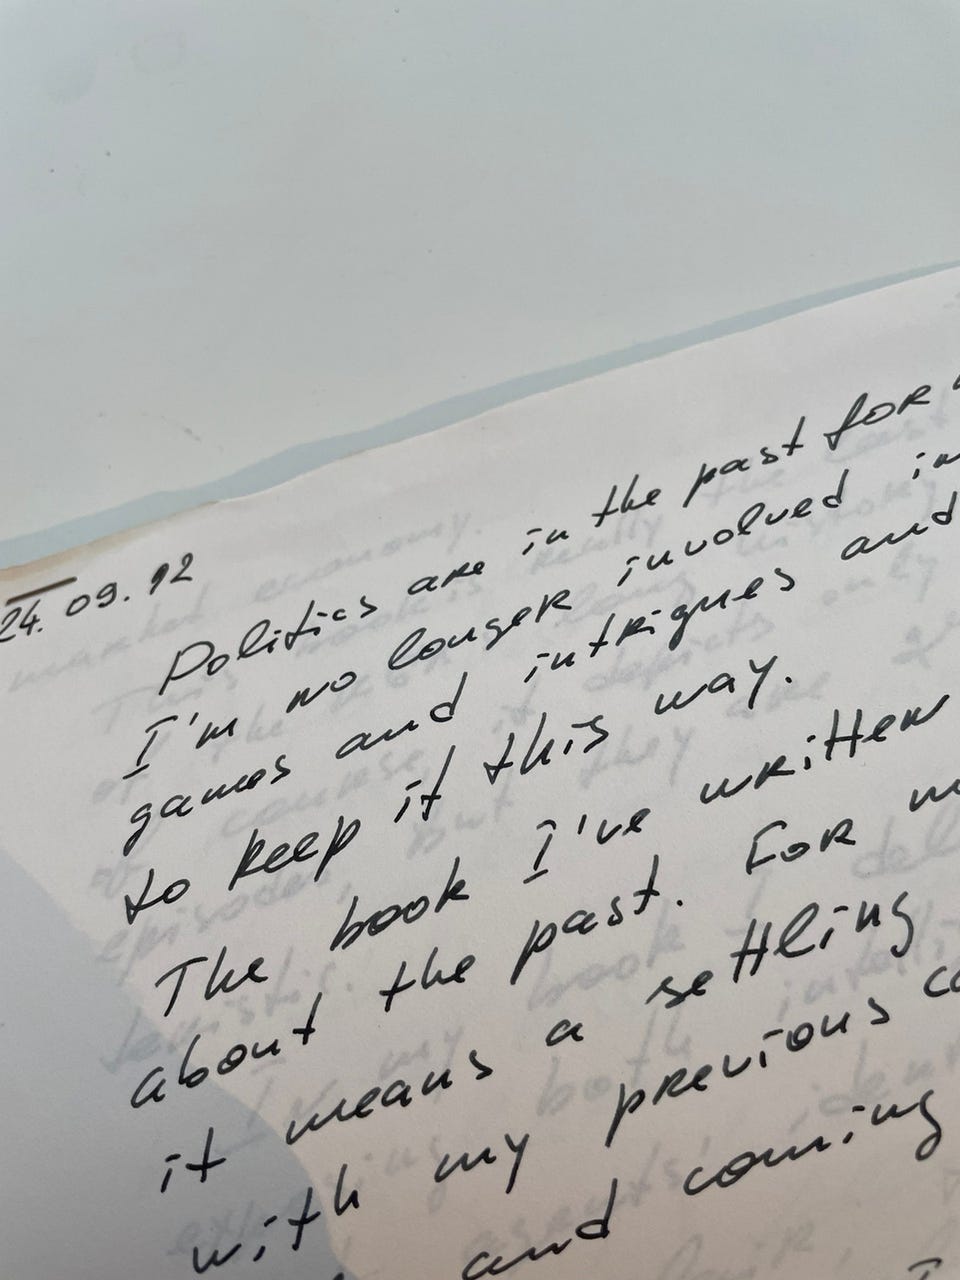 24.09.92
Politics are in the past for
I'm no longer involved in
games and intrigues and
to keep it this way.
The book I've written
about the past. For
it means a settling
with my previous
and coming